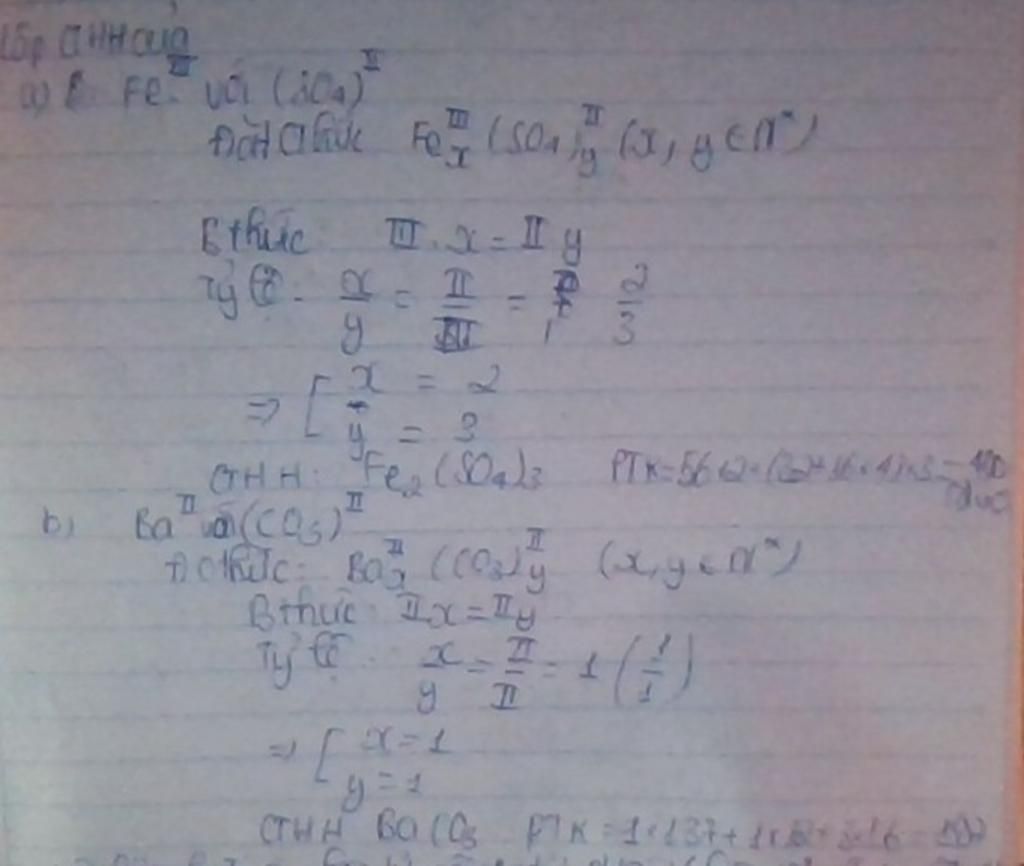 Lập CTHH của
a) Fe^III với (SO4)^II
Đặt CThức Fe^III_x (SO4)^II_y (x, y ∈ N*)
Bthức III . x = II y
Tỷ lệ : x/y = II/III = 2/3
=> [ x = 2
y = 3
CTHH : Fe2(SO4)3 PTK = 56×2+(32+16×4)×3 = 400
đvc
b) Ba^II và (CO3)^II
Đ Cthức : Ba^II_x (CO3)^II_y (x, y ∈ N*)
Bthức : II x = II y
Tỷ lệ x/y = II/II = 1 (1/1)
=> [ x = 1
y = 1
CTHH BaCO3 PTK = 1×137+1×12+3×16 = 197